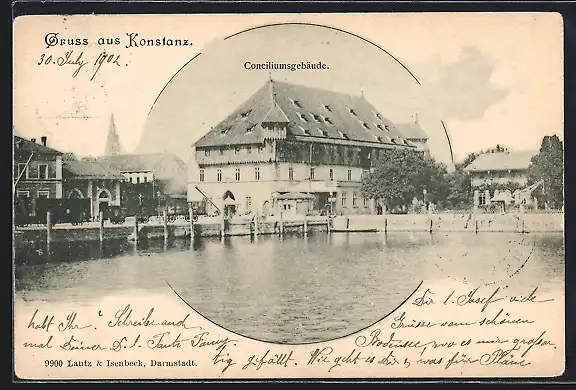 Gruss aus Konstanz.
30. July 1902.
Conciliumsgebäude.
Dir l. Josef viele
Grüsse vom schönen
Bodensee, wo es mir großar-
tig gefällt. Wie geht es Dir, was für Pläne
habt Ihr? Schreibe auch
mal Deiner Dr. l. Tante Fanny
9900 Lautz & Isenbeck, Darmstadt.